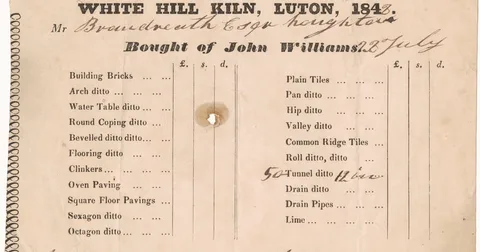 WHITE HILL KILN, LUTON, 1848.
Mr Brandreath Esqr houghton
Bought of John Williams 28 July
£. s. d.
Building Bricks ... ...
Arch ditto ... ... ...
Water Table ditto ... ...
Round Coping ditto ...
Bevelled ditto ditto ...
Flooring ditto ... ...
Clinkers ... ... ...
Oven Paving ... ...
Square Floor Pavings ...
Sexagon ditto ... ...
Octagon ditto ... ...
£. s. d.
Plain Tiles ... ...
Pan ditto ... ...
Hip ditto ... ...
Valley ditto ...
Common Ridge Tiles ...
Roll ditto, ditto ...
50 Tunnel ditto 12 in
Drain ditto ...
Drain Pipes ... ...
Lime ... ... ...